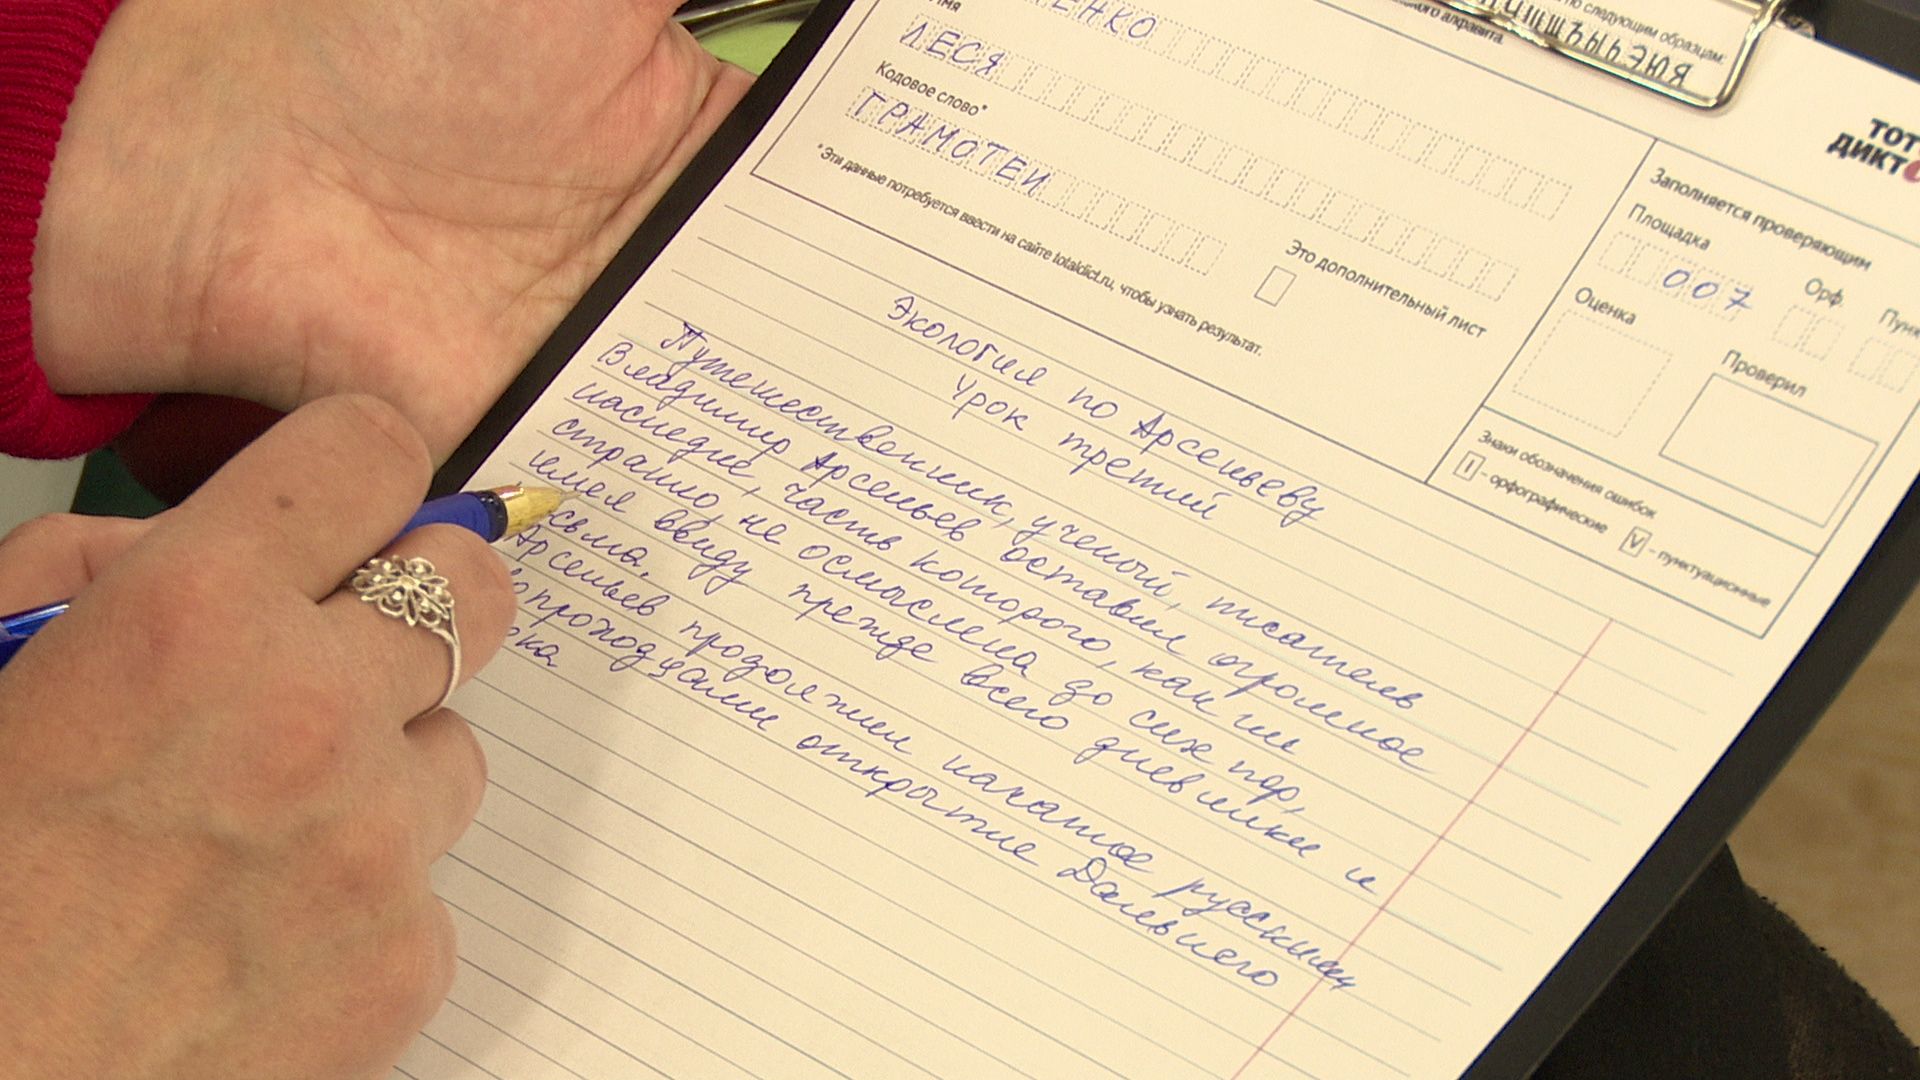 по следующим образцам:
ЧШЩЪЫЬЭЮЯ
алфавита.
ЕНКО
Имя
ЛЕСЯ
Кодовое слово*
ГРАМОТЕИ
*Эти данные потребуется ввести на сайте totaldict.ru, чтобы узнать результат.
Это дополнительный лист
ТОТ
ДИКТ
Заполняется проверяющим
Площадка
007
Орф.
Пунк
Оценка
Проверил
Знаки обозначения ошибок
I – орфографические
V – пунктуационные
Экология по Арсеньеву
Урок третий
Путешественник, ученый, писатель
Владимир Арсеньев оставил огромное
наследие, часть которого, как ни
странно, не осмыслена до сих пор,
имея ввиду прежде всего дневники и
сьма.
Арсеньев продолжил начатое русскими
вопроходцами открытие Дальнего
ока